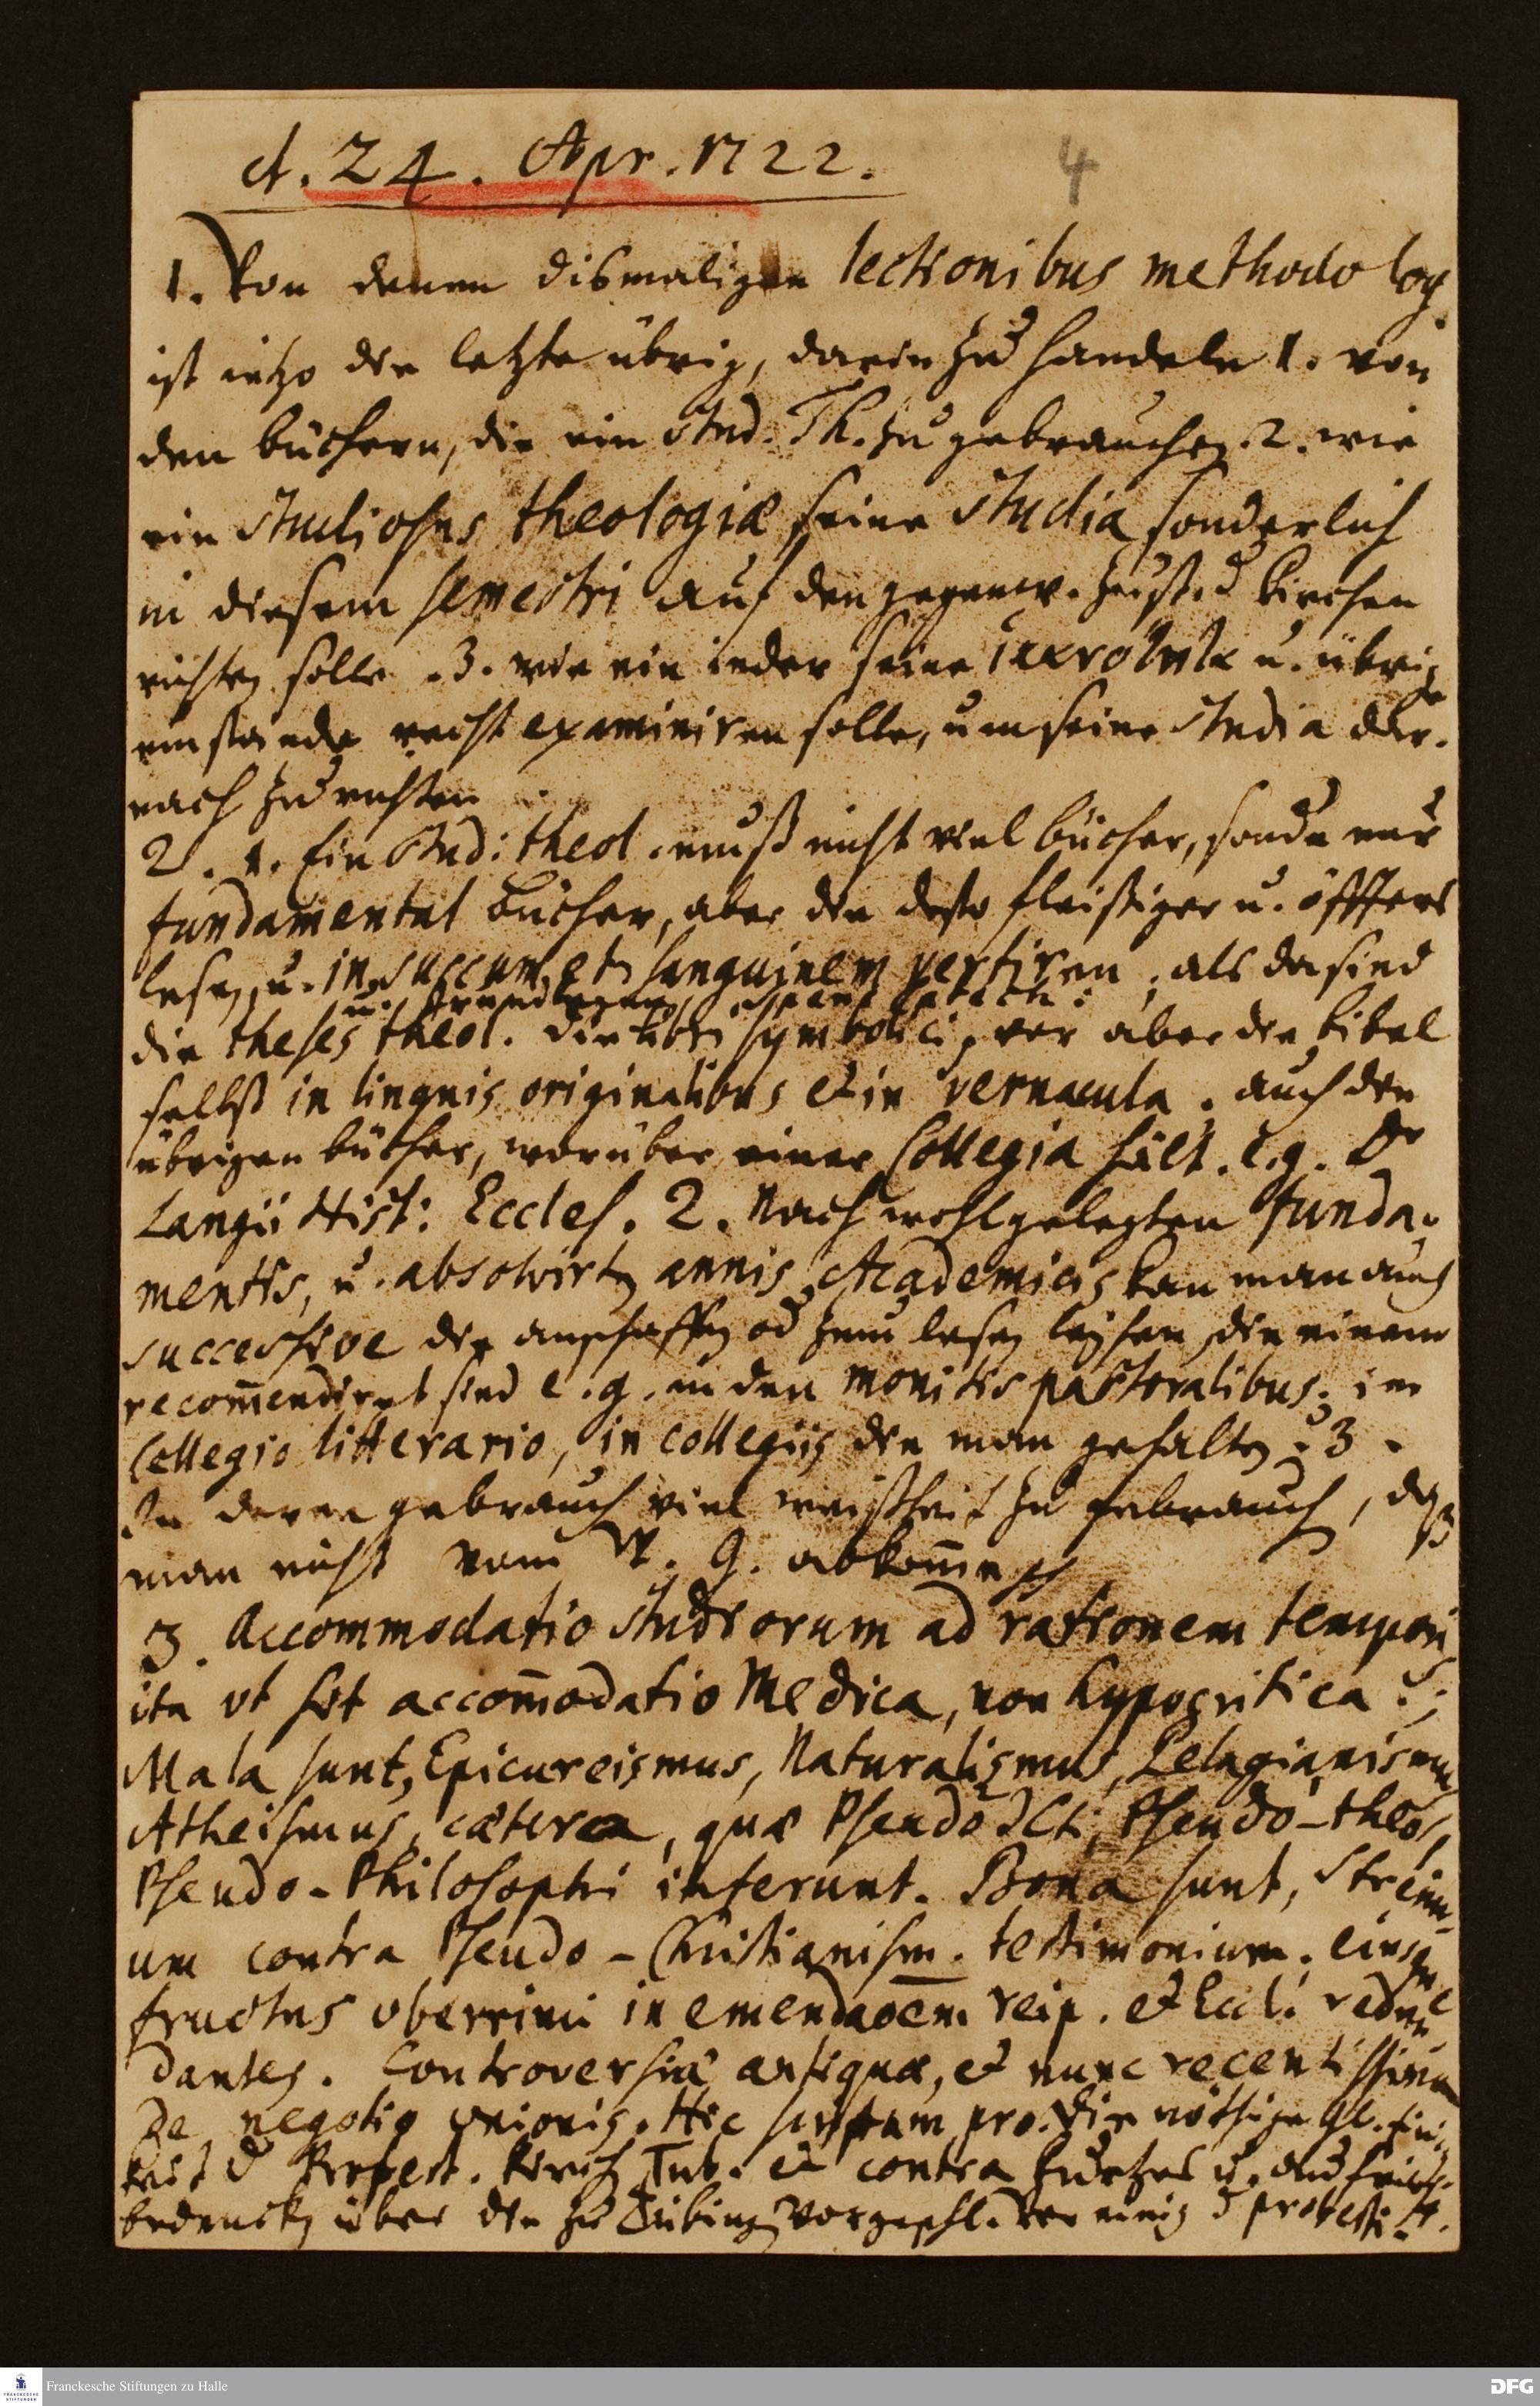 d. 24. Apr. 1722.
4
1. Von denen dismaligen lectionibus methodolog.
ist ietzo die letzte übrig, darin zu handeln 1. von
den büchern, die ein Stud. Th. zu gebrauchen. 2. wie
ein Studiosus theologiæ seine Studia sonderlich
in diesem semestri auf den gegenw. Zust. d Kirchen
richten solle. 3. wie ein ieder seine u. übrige
umstände recht examiniren solle, um seine Studia dar-
nach zu richten
2. 1. Ein Stud: theol. muß nicht viel bücher, sondn nur
fundamental Bücher, aber die desto fleißiger u. öffters
lesen, u. in succum et sanguinem vertiren, als da sind
u. Grundlegung
die theses theol. die libri symbolici, vor aber die bibel
selbst in linguis originalibus et in vernacula. auch die
übrigen bücher, worüber einer Collegia hält. e.g. Dr
Langii Hist: Eccles. 2. Nach wohlgelegten funda-
mentis, u. absolvirten annis Academicis kan man auch
successive die anschaffen od zum lesen leyhen, die einem
recom̄endiret sind e.g. in den monitis pastoralibus, im
Collegio litterario, in collegiis die man gehalten. 3.
In deren gebrauch viel weißheit zu gebrauch, daß
man nicht vom W. G. abkom̄e
3. Accommodatio studiorum ad rationem tempori
ita ut sit accom̄odatio Medica, non hypocritica
Mala sunt, Epicureismus, Naturalismus, Pelagianismus
Atheismus, cætera, quæ Pseudo JCti, Pseudo-theol,
Pseudo-Philosophi inferunt. Bona sunt, Strenu-
um contra Pseudo-Christianism. testimonium. eiusq
fructus uberrimi in emendaōem reip. et Eccl. redun-
dantes. Controversiæ antiquæ, et nunc recentissimæ
de negotio unionis. Hic scriptum pro. Die nöthige Gl. Eini-
keit d Protest. Kirch Tub. et contra u.
bedencken über die zu Tübing vorgeschl. Vereinig d protesti.
Franckesche Stiftungen zu Halle
DFG